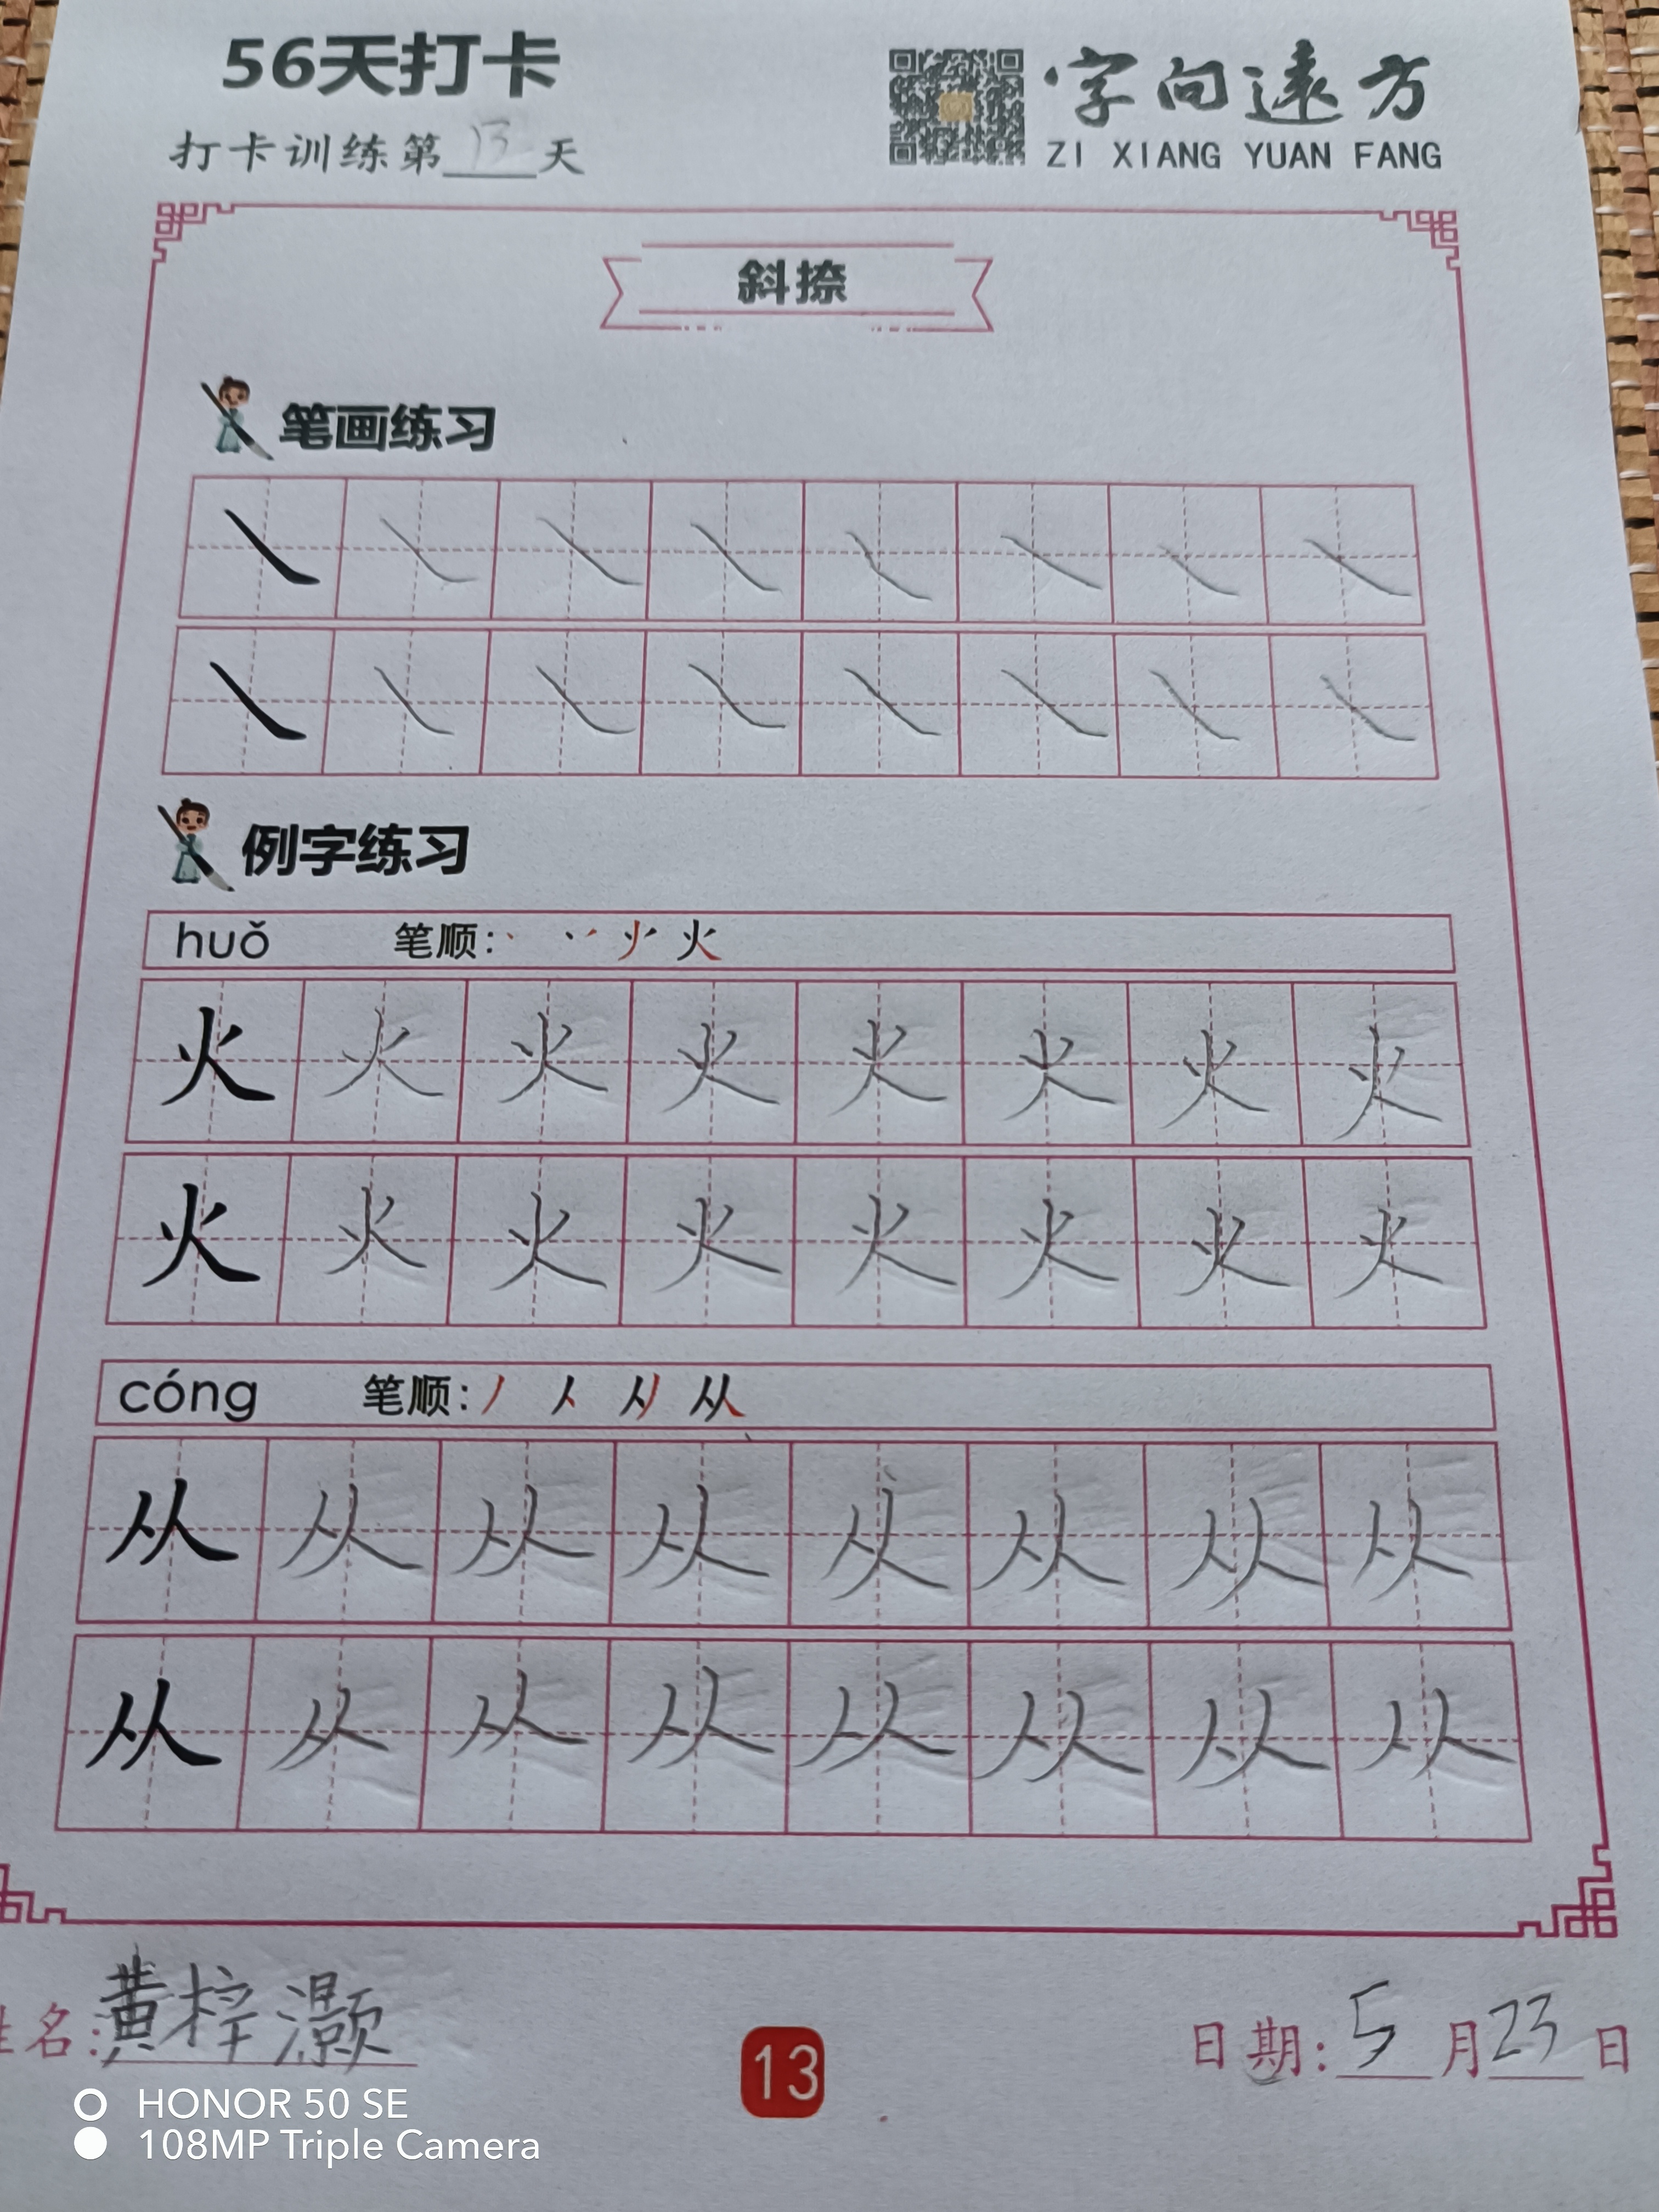 56天打卡
字向远方
打卡训练第13天
ZI XIANG YUAN FANG
斜捺
笔画练习
例字练习
huǒ 笔顺: 火
火 火 火 火 火 火 火 火
火 火 火 火 火 火 火 火
cóng 笔顺: 丿 人 从
从 从 从 从 从 从 从 从
从 从 从 从 从 从 从 从
姓名:黄梓灏
日期:5月23日
13
HONOR 50 SE
108MP Triple Camera